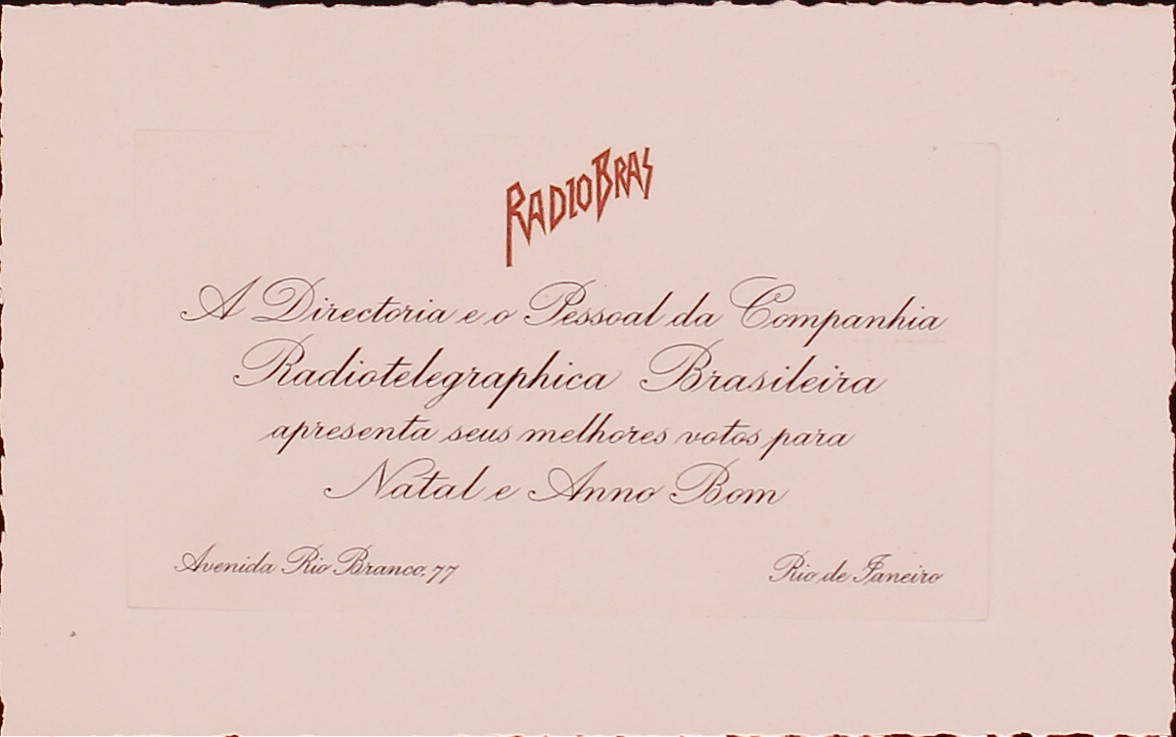 RADIOBRAS
A Directoria e o Pessoal da Companhia
Radiotelegraphica Brasileira
apresenta seus melhores votos para
Natal e Anno Bom
Avenida Rio Branco, 77
Rio de Janeiro